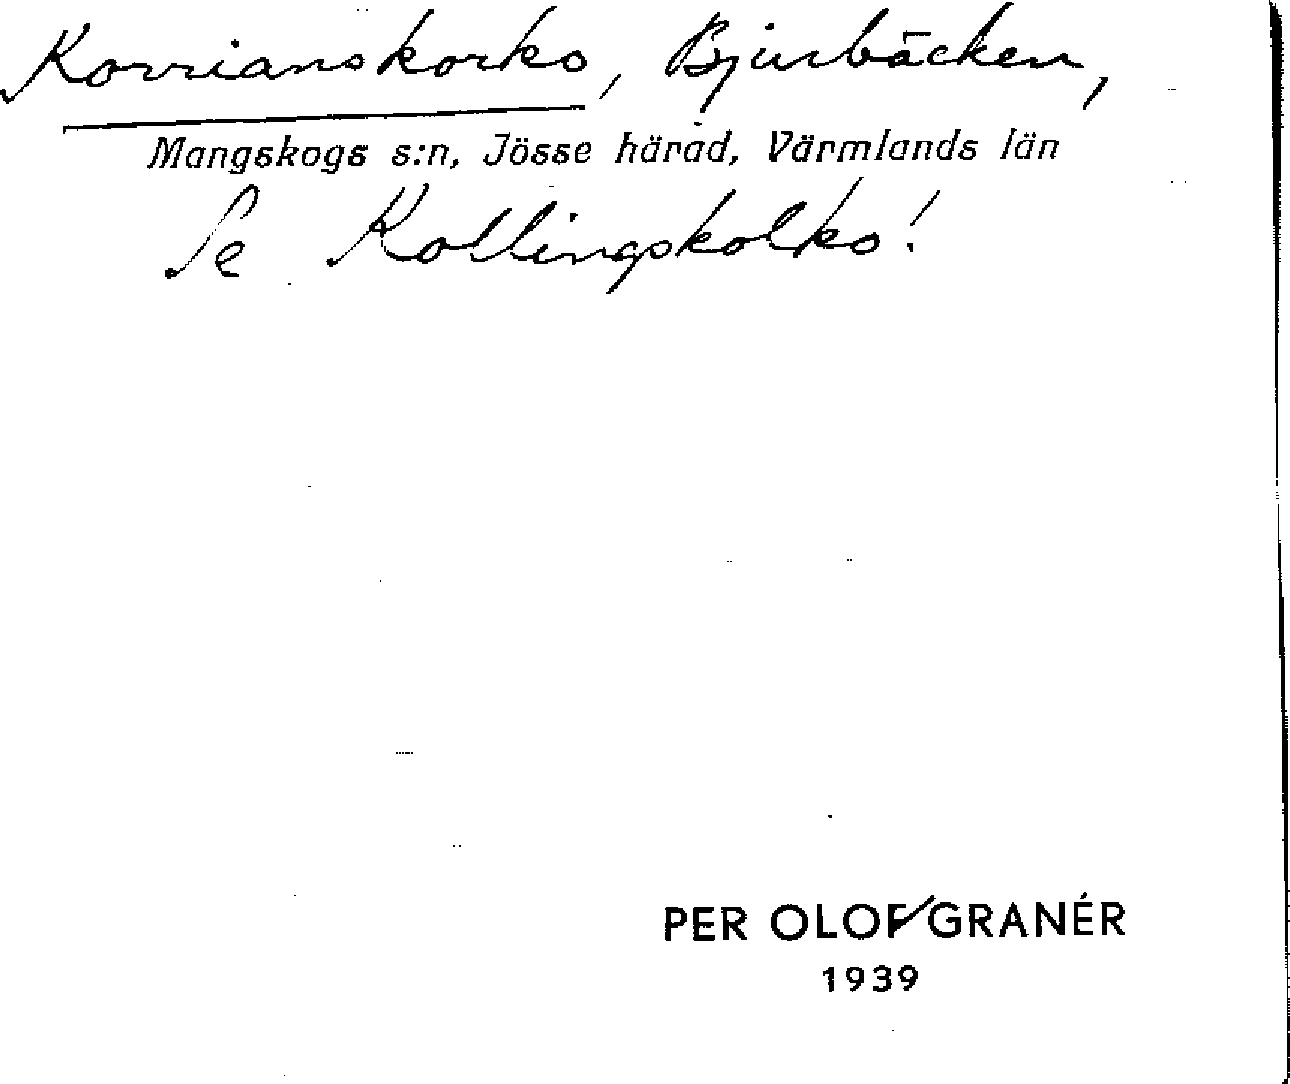 Korrianskorko, Bjurbäcken,
Mangskogs s:n, Jösse härad, Värmlands län
Se Kollingskolko!
PER OLOF GRANÉR
1939